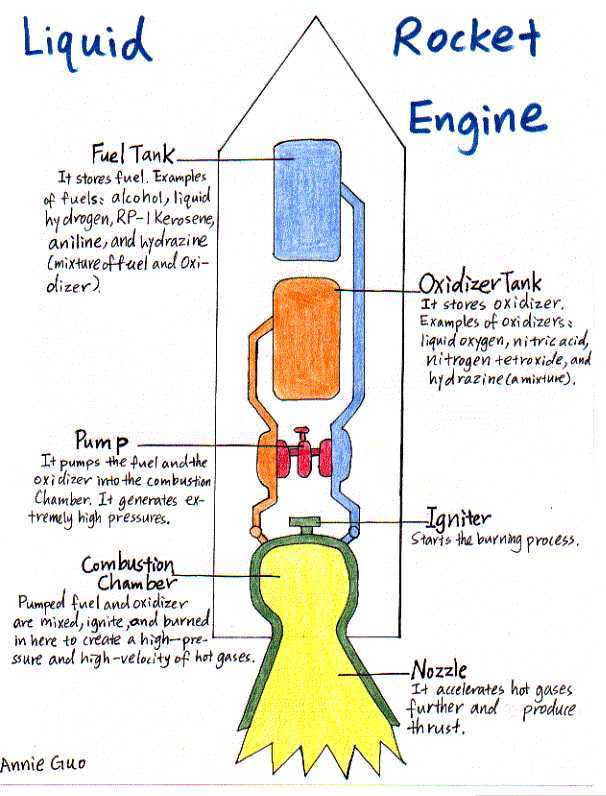 Liquid
Rocket
Engine
Fuel Tank
It stores fuel. Examples
of fuels: alcohol, liquid
hydrogen, RP-1 Kerosene,
aniline, and hydrazine
(mixture of fuel and Oxi-
dizer).
Oxidizer Tank
It stores oxidizer.
Examples of oxidizers:
liquid oxygen, nitric acid,
nitrogen tetroxide, and
hydrazine (a mixture).
Pump
It pumps the fuel and the
oxidizer into the combustion
Chamber. It generates ex-
tremely high pressures.
Igniter
Starts the burning process.
Combustion
Chamber
Pumped fuel and oxidizer
are mixed, ignite, and burned
in here to create a high-pre-
ssure and high-velocity of hot gases.
Nozzle
It accelerates hot gases
further and produce
thrust.
Annie Guo